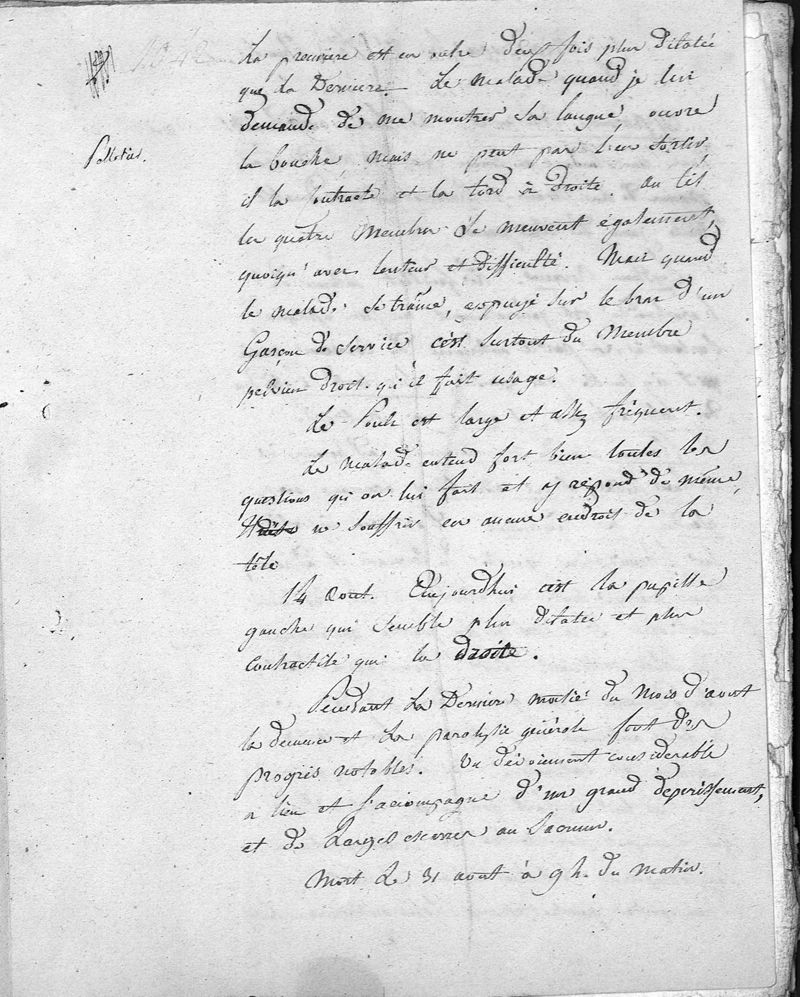 La première est en outre deux fois plus dilatée
que La Derniere. Le malade quand je lui
demande de me montrer sa langue, ouvre
la bouche, mais ne peut pas bien sortir,
il la contracte et la tord à droite. au lit
les quatre Membres se meuvent également,
quoiqu'avec lenteur et difficulté. Mais quand
le malade se traîne, appuyé sur le bras d'un
Garçon de service c'est surtout du Membre
pelvien droit qu'il fait usage.
Le Pouls est large et assez fréquent.
Le malade entend fort bien toutes les
questions qu'on lui fait et y répond de même,
ne souffrir en aucun endroit de la
tête
14 aout. Aujourdhui c'est la pupille
gauche qui semble plus dilatée et plus
contractile que la droite.
Pendant La Derniere moitié du mois d'aout
la demence et la paralysie générale font des
progrès notables. Un dévoiement considérable
a lieu et s'accompagne d'un grand deperissement,
et de Larges escarres au Sacrum.
Mort Le 31 aout à 9 h. du matin.